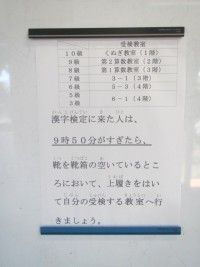 受検教室
10級 くぬぎ教室(1階)
9級 第2算数教室(2階)
8級 第1算数教室(3階)
7級 3-1(3階)
6級 5-3(4階)
5級
3級 6-1(4階)
漢字検定に来た人は、
9時50分がすぎたら、
靴を靴箱の空いているとこ
ろにおいて、上履きをはい
て自分の受検する教室へ行
きましょう。